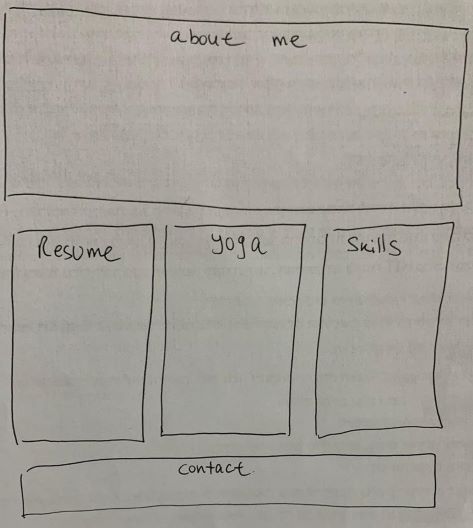 about me
Resume
yoga
Skills
contact.